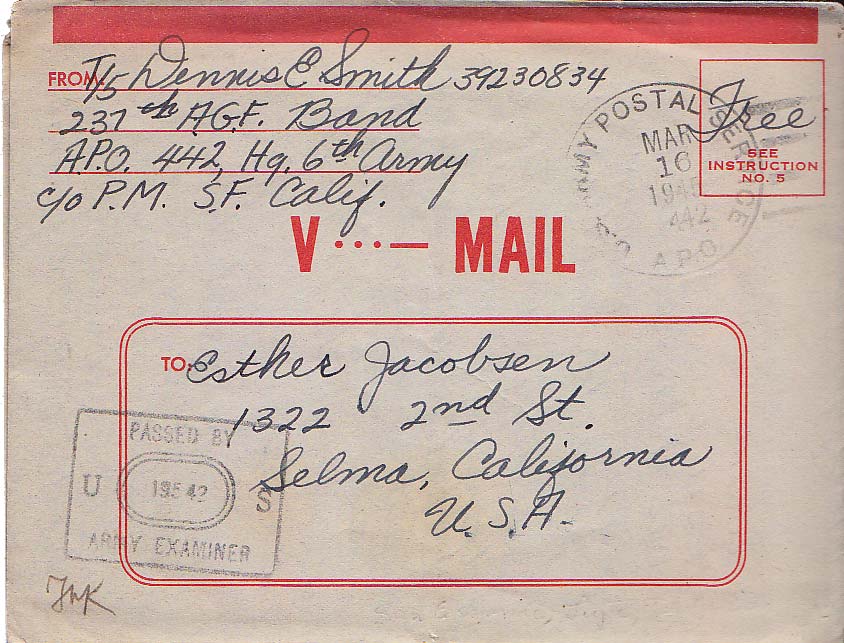 FROM T/5 Dennis E Smith 39230834
237th A.G.F. Band
A.P.O. 442, Hq. 6th Army
c/o P.M. S.F. Calif.
Free
SEE
INSTRUCTION
NO. 5
ARMY POSTAL SERVICE
MAR
16
1945
442
A.P.O.
V ···— MAIL
TO: Esther Jacobsen
1322 2nd St.
Selma, California
U.S.A.
PASSED BY
U S
ARMY EXAMINER